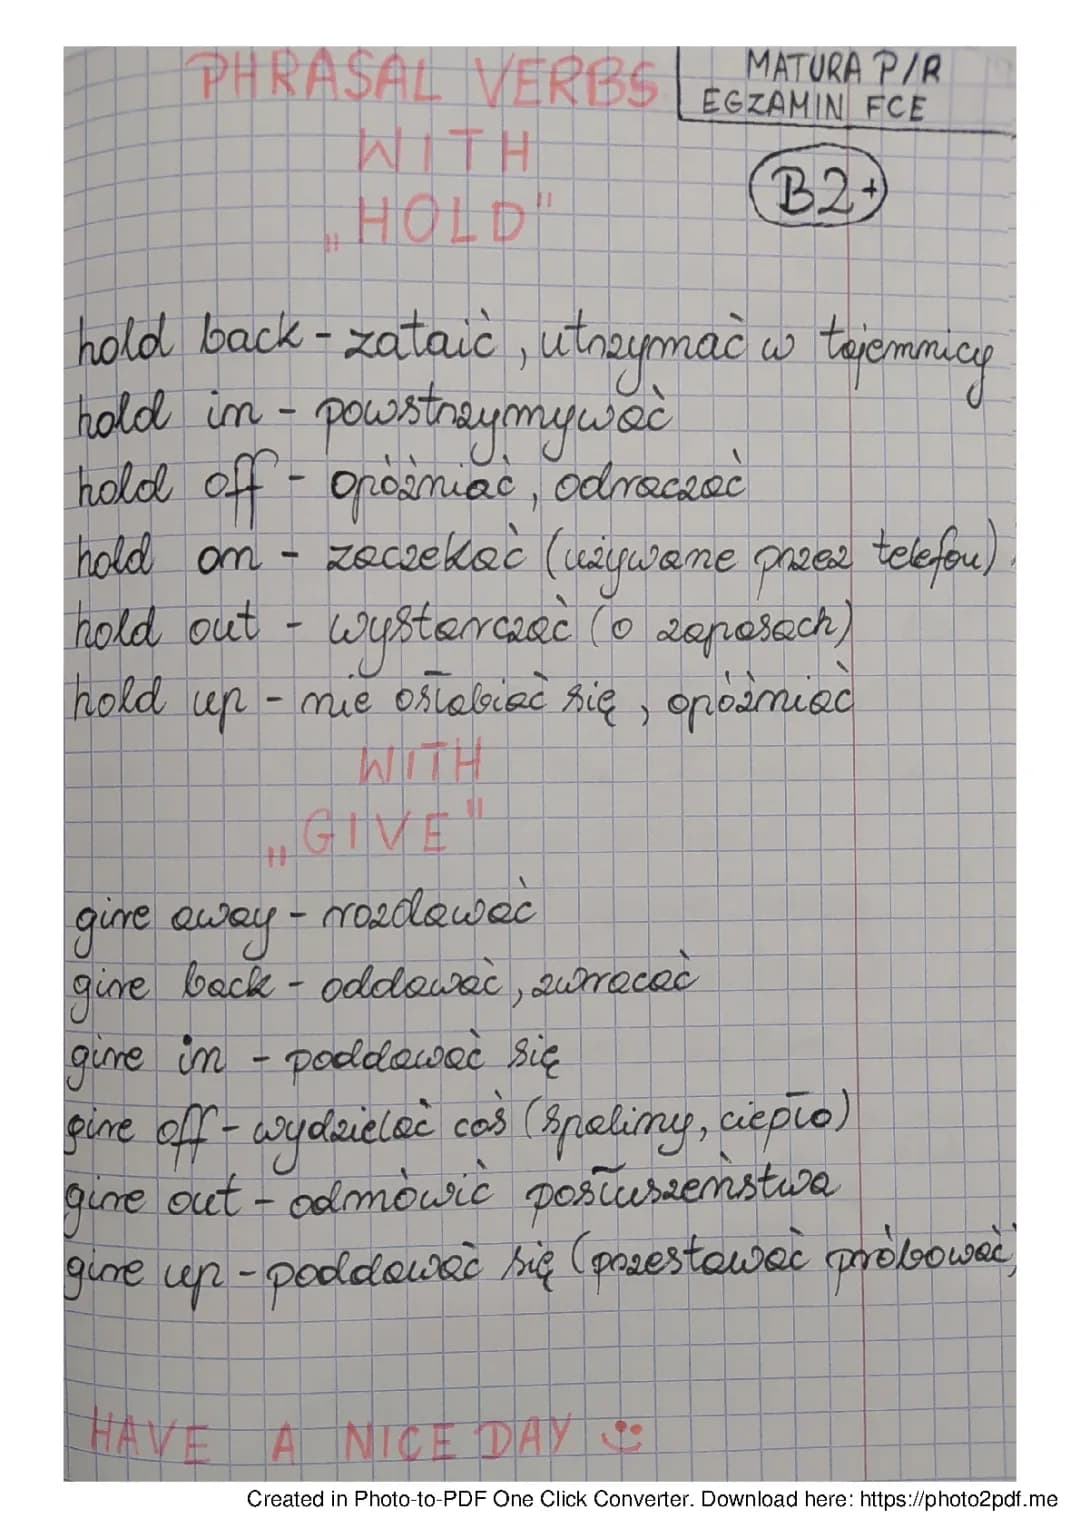 PHRASAL VERBS
MATURA P/R
EGZAMIN FCE
WITH
B2+
„HOLD"
hold back - zataić, utrzymać w tajemnicy
hold in - powstrzymywać
hold off - opóźniać, odraczać
hold on - zaczekać (używane przez telefon).
hold out - wystarczać (o zapasach)
hold up - nie osłabiać się, opóźniać
WITH
„GIVE"
give away - rozdawać
give back - oddawać, zwracać
give in - poddawać się
give off - wydzielać coś (spaliny, ciepło)
give out - odmówić posłuszeństwa
give up - poddawać się (przestawać próbować)
HAVE A NICE DAY
Created in Photo-to-PDF One Click Converter. Download here: https://photo2pdf.me